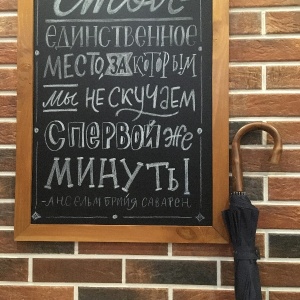 Стол-
ЕДИНСТВЕННОЕ
МЕСТО, ЗА КОТОРЫМ
МЫ НЕ СКУЧАЕМ
С ПЕРВОЙ ЖЕ
МИНУТЫ
-АНСЕЛЬМ БРИЙЯ САВАРЕН